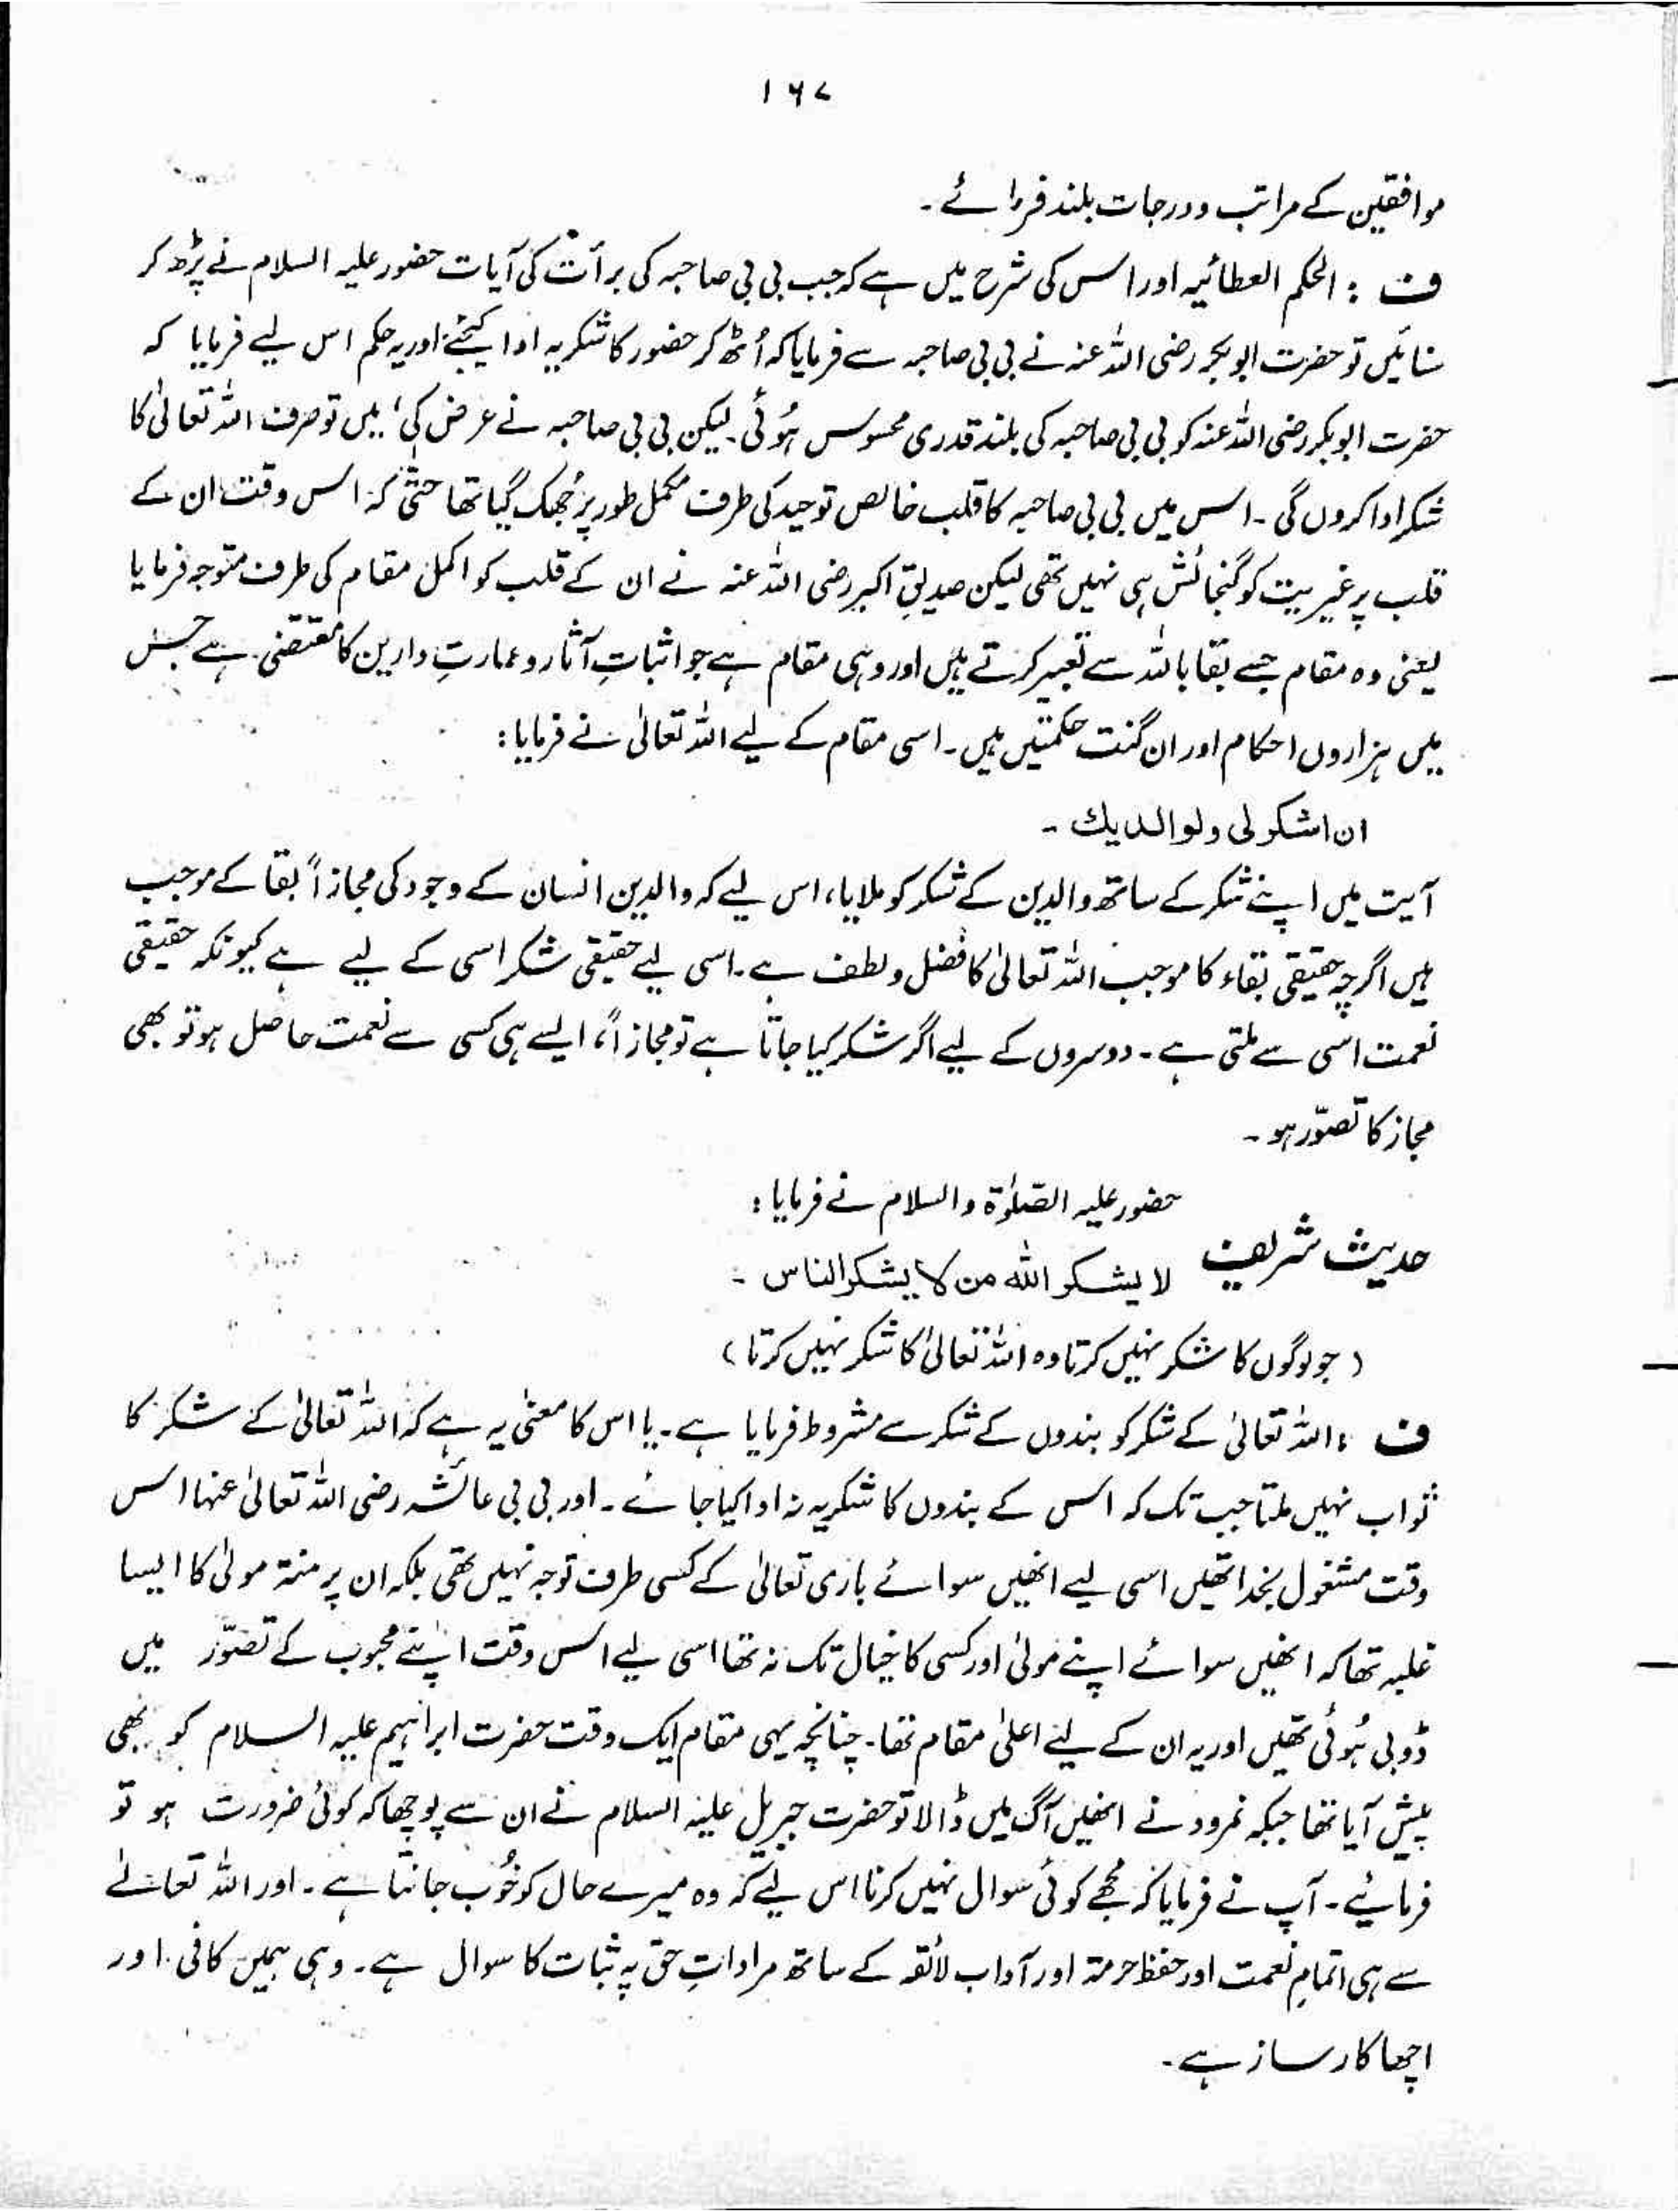 ۱۶۷
موافقین کے مراتب و درجات بلند فرمائے۔
ف : الحکم العطائیہ اور اس کی شرح میں ہے کہ جب بی بی صاحبہ کی برأت کی آیات حضور علیہ السلام نے پڑھ کر
سنائیں تو حضرت ابوبکر رضی اللہ عنہ نے بی بی صاحبہ سے فرمایا کہ اُٹھ کر حضور کا شکریہ ادا کیجئے، اور یہ حکم اس لیے فرمایا کہ
حضرت ابوبکر رضی اللہ عنہ کو بی بی صاحبہ کی بلند قدری محسوس ہُوئی۔ لیکن بی بی صاحبہ نے عرض کی، میں تو صرف اللہ تعالیٰ کا
شکر ادا کروں گی۔ اس میں بی بی صاحبہ کا قلب خالص توحید کی طرف مکمل طور پر جُھک گیا تھا حتیٰ کہ اس وقت ان کے
قلب پر غیریت کو گنجائش ہی نہیں تھی لیکن صدیقِ اکبر رضی اللہ عنہ نے ان کے قلب کو اکمل مقام کی طرف متوجہ فرمایا
یعنی وہ مقام جسے بقا باللہ سے تعبیر کرتے ہیں اور وہی مقام ہے جو اثباتِ آثار و عمارتِ دارین کا مقتضی ہے جس
میں ہزاروں احکام اور ان گنت حکمتیں ہیں۔ اسی مقام کے لیے اللہ تعالیٰ نے فرمایا :
ان اشکر لی ولوالدیك ۔
آیت میں اپنے شکر کے ساتھ والدین کے شکر کو ملایا، اس لیے کہ والدین انسان کے وجود کی مجازاً بقا کے موجب
ہیں اگرچہ حقیقی بقاء کا موجب اللہ تعالیٰ کا فضل و لطف ہے۔ اسی لیے حقیقی شکر اسی کے لیے ہے کیونکہ حقیقی
نعمت اسی سے ملتی ہے۔ دوسروں کے لیے اگر شکر کیا جاتا ہے تو مجازاً، ایسے ہی کسی سے نعمت حاصل ہو تو بھی
مجاز کا تصوّر ہو۔
حضور علیہ الصلوٰۃ والسلام نے فرمایا :
حدیث شریف لا یشکر اللہ من لا یشکر الناس ۔
( جو لوگوں کا شکر نہیں کرتا وہ اللہ تعالیٰ کا شکر نہیں کرتا )
ف : اللہ تعالیٰ کے شکر کو بندوں کے شکر سے مشروط فرمایا ہے۔ یا اس کا معنیٰ یہ ہے کہ اللہ تعالیٰ کے شکر کا
ثواب نہیں ملتا جب تک کہ اس کے بندوں کا شکریہ نہ ادا کیا جائے۔ اور بی بی عائشہ رضی اللہ تعالیٰ عنہا اس
وقت مشغول بخدا تھیں اسی لیے انھیں سوائے باری تعالیٰ کے کسی طرف توجہ نہیں تھی بلکہ ان پر منۃ مولیٰ کا ایسا
غلبہ تھا کہ انھیں سوائے اپنے مولیٰ اور کسی کا خیال تک نہ تھا اسی لیے اس وقت اپنے محبوب کے تصوّر میں
ڈوبی ہُوئی تھیں اور یہ ان کے لیے اعلیٰ مقام تھا۔ چنانچہ یہی مقام ایک وقت حضرت ابراہیم علیہ السلام کو بھی
پیش آیا تھا جبکہ نمرود نے انھیں آگ میں ڈالا تو حضرت جبریل علیہ السلام نے ان سے پوچھا کہ کوئی ضرورت ہو تو
فرمائیے۔ آپ نے فرمایا کہ مجھے کوئی سوال نہیں کرنا اس لیے کہ وہ میرے حال کو خُوب جانتا ہے۔ اور اللہ تعالےٰ
سے ہی اتمامِ نعمت اور حفظ حرمۃ اور آداب لائقہ کے ساتھ مراداتِ حق پہ ثبات کا سوال ہے۔ وہی ہمیں کافی اور
اچھا کارساز ہے۔